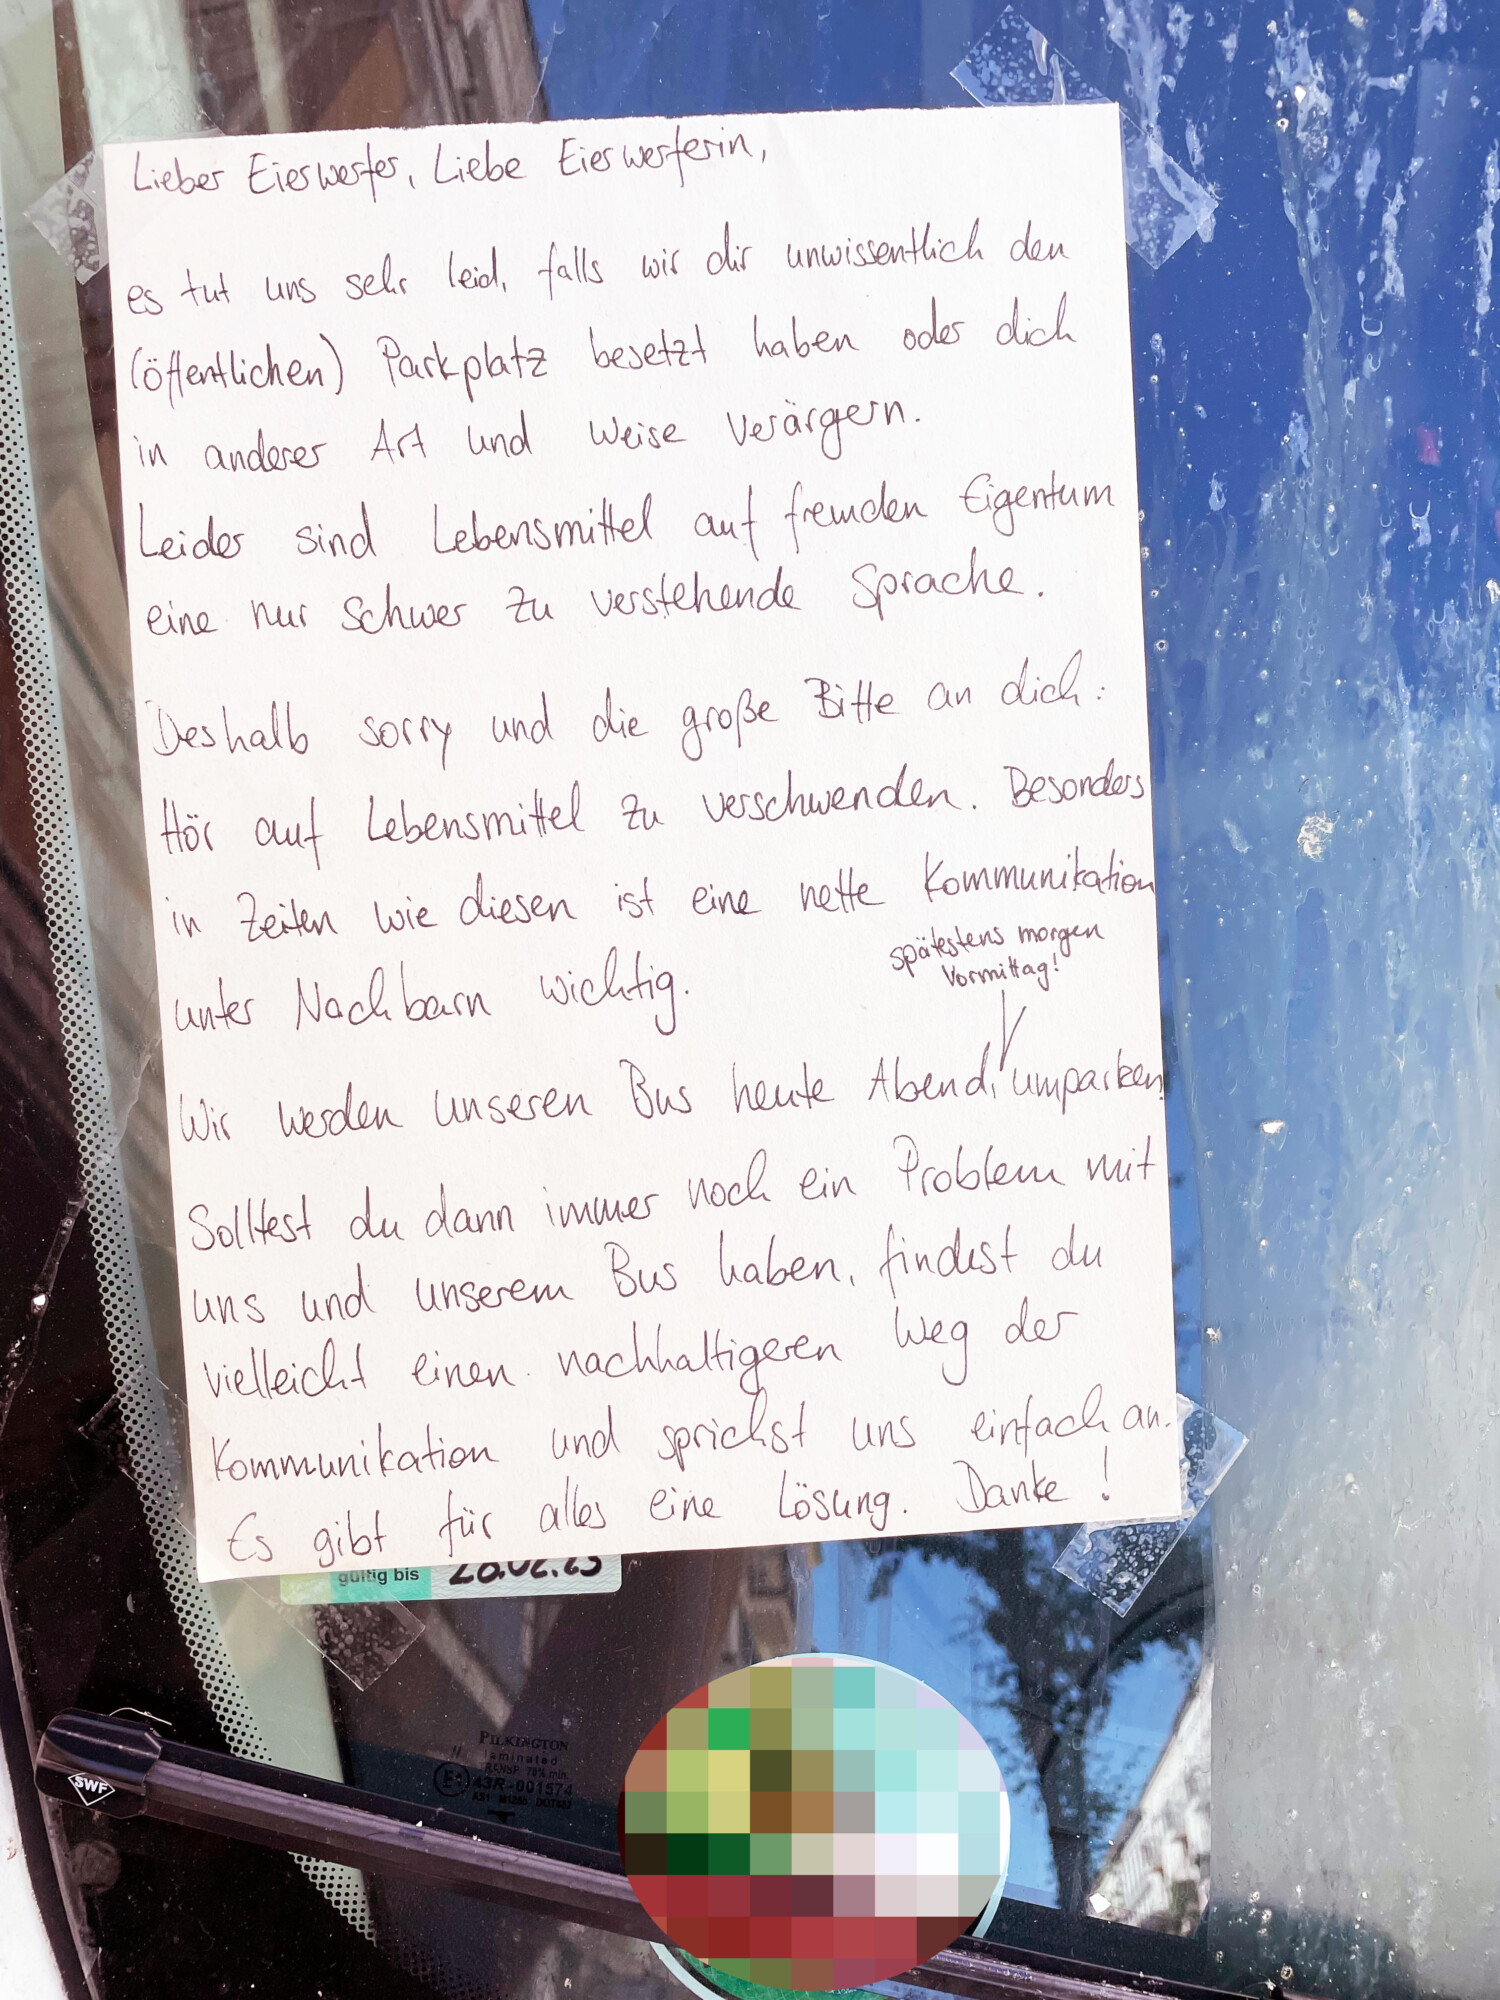 Lieber Eierwerfer, Liebe Eierwerferin,
es tut uns sehr leid, falls wir dir unwissentlich den
(öffentlichen) Parkplatz besetzt haben oder dich
in anderer Art und Weise verärgern.
Leider sind Lebensmittel auf fremden Eigentum
eine nur schwer zu verstehende Sprache.
Deshalb sorry und die große Bitte an dich:
Hör auf Lebensmittel zu verschwenden. Besonders
in Zeiten wie diesen ist eine nette Kommunikation
unter Nachbarn wichtig.
spätestens morgen
Vormittag!
Wir werden unseren Bus heute Abend, umparken!
Solltest du dann immer noch ein Problem mit
uns und unserem Bus haben, findest du
vielleicht einen nachhaltigeren Weg der
Kommunikation und sprichst uns einfach an.
Es gibt für alles eine Lösung. Danke!
gültig bis
PILKINGTON
laminated
TRANSP. 70% min.
43R-001574
AS1
SWF